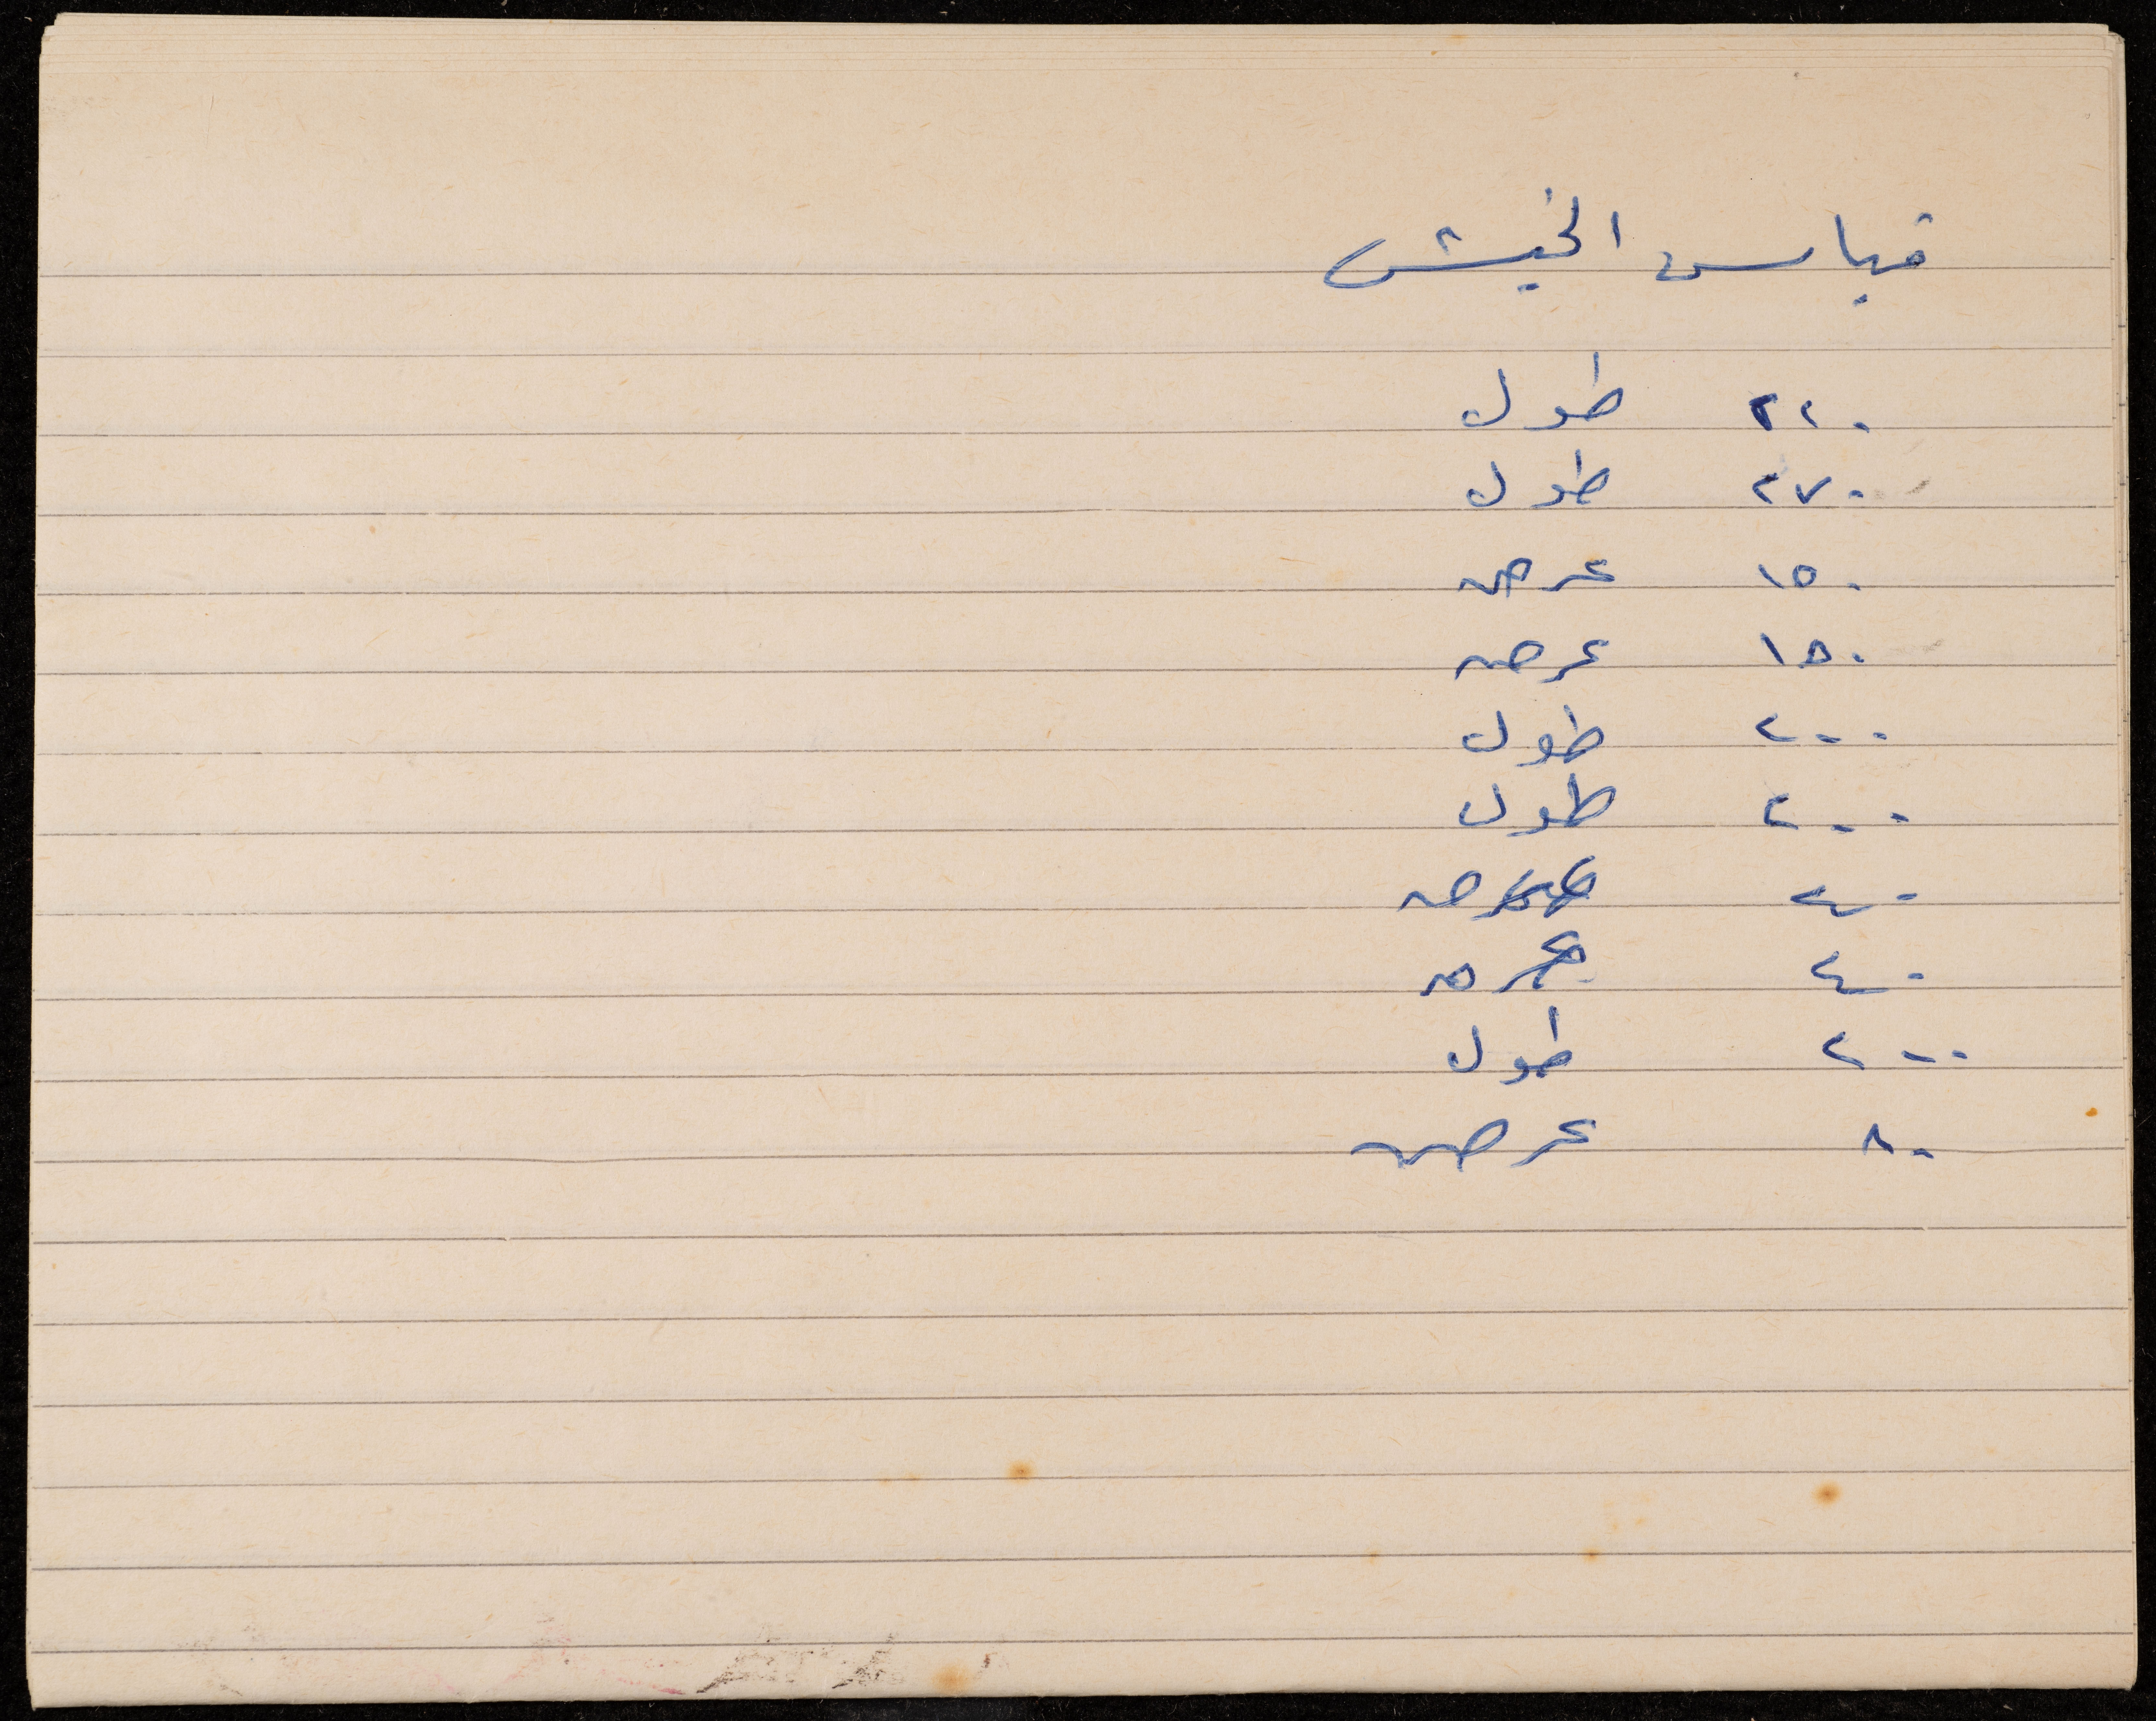 قياس الخيش
٢٢٠ طول
٢٧٠ طول
١٥٠ عرض
١٥٠ عرض
٢٠٠ طول
٢٠٠ طول
٤٠ عرض
٤٠ عرض
٢٠٠ طول
٨٠ عرض